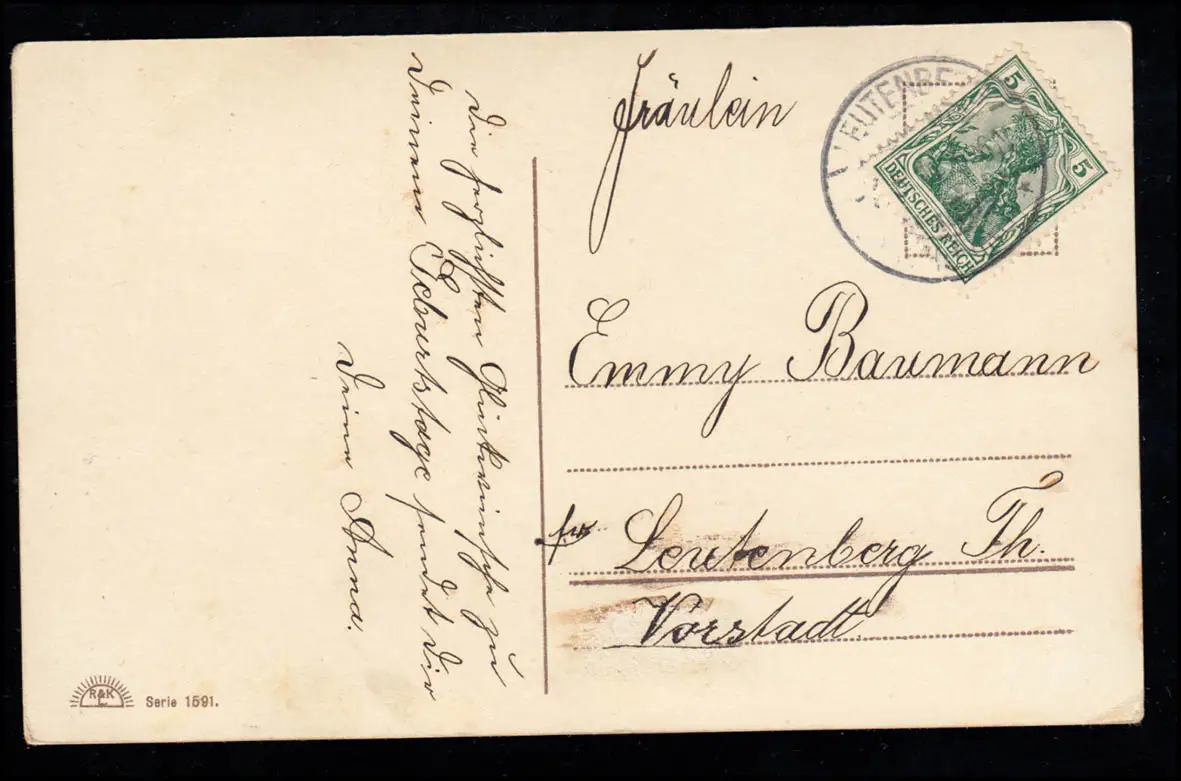 Die herzlichsten Glückwünsche zu
Deinem Geburtstage sendet Dir
Deine Anna.
Fräulein
Emmy Baumann
Leutenberg Th.
Vorstadt.
LEUTENBE
5
5
DEUTSCHES REICH
R&K
L
Serie 1591.